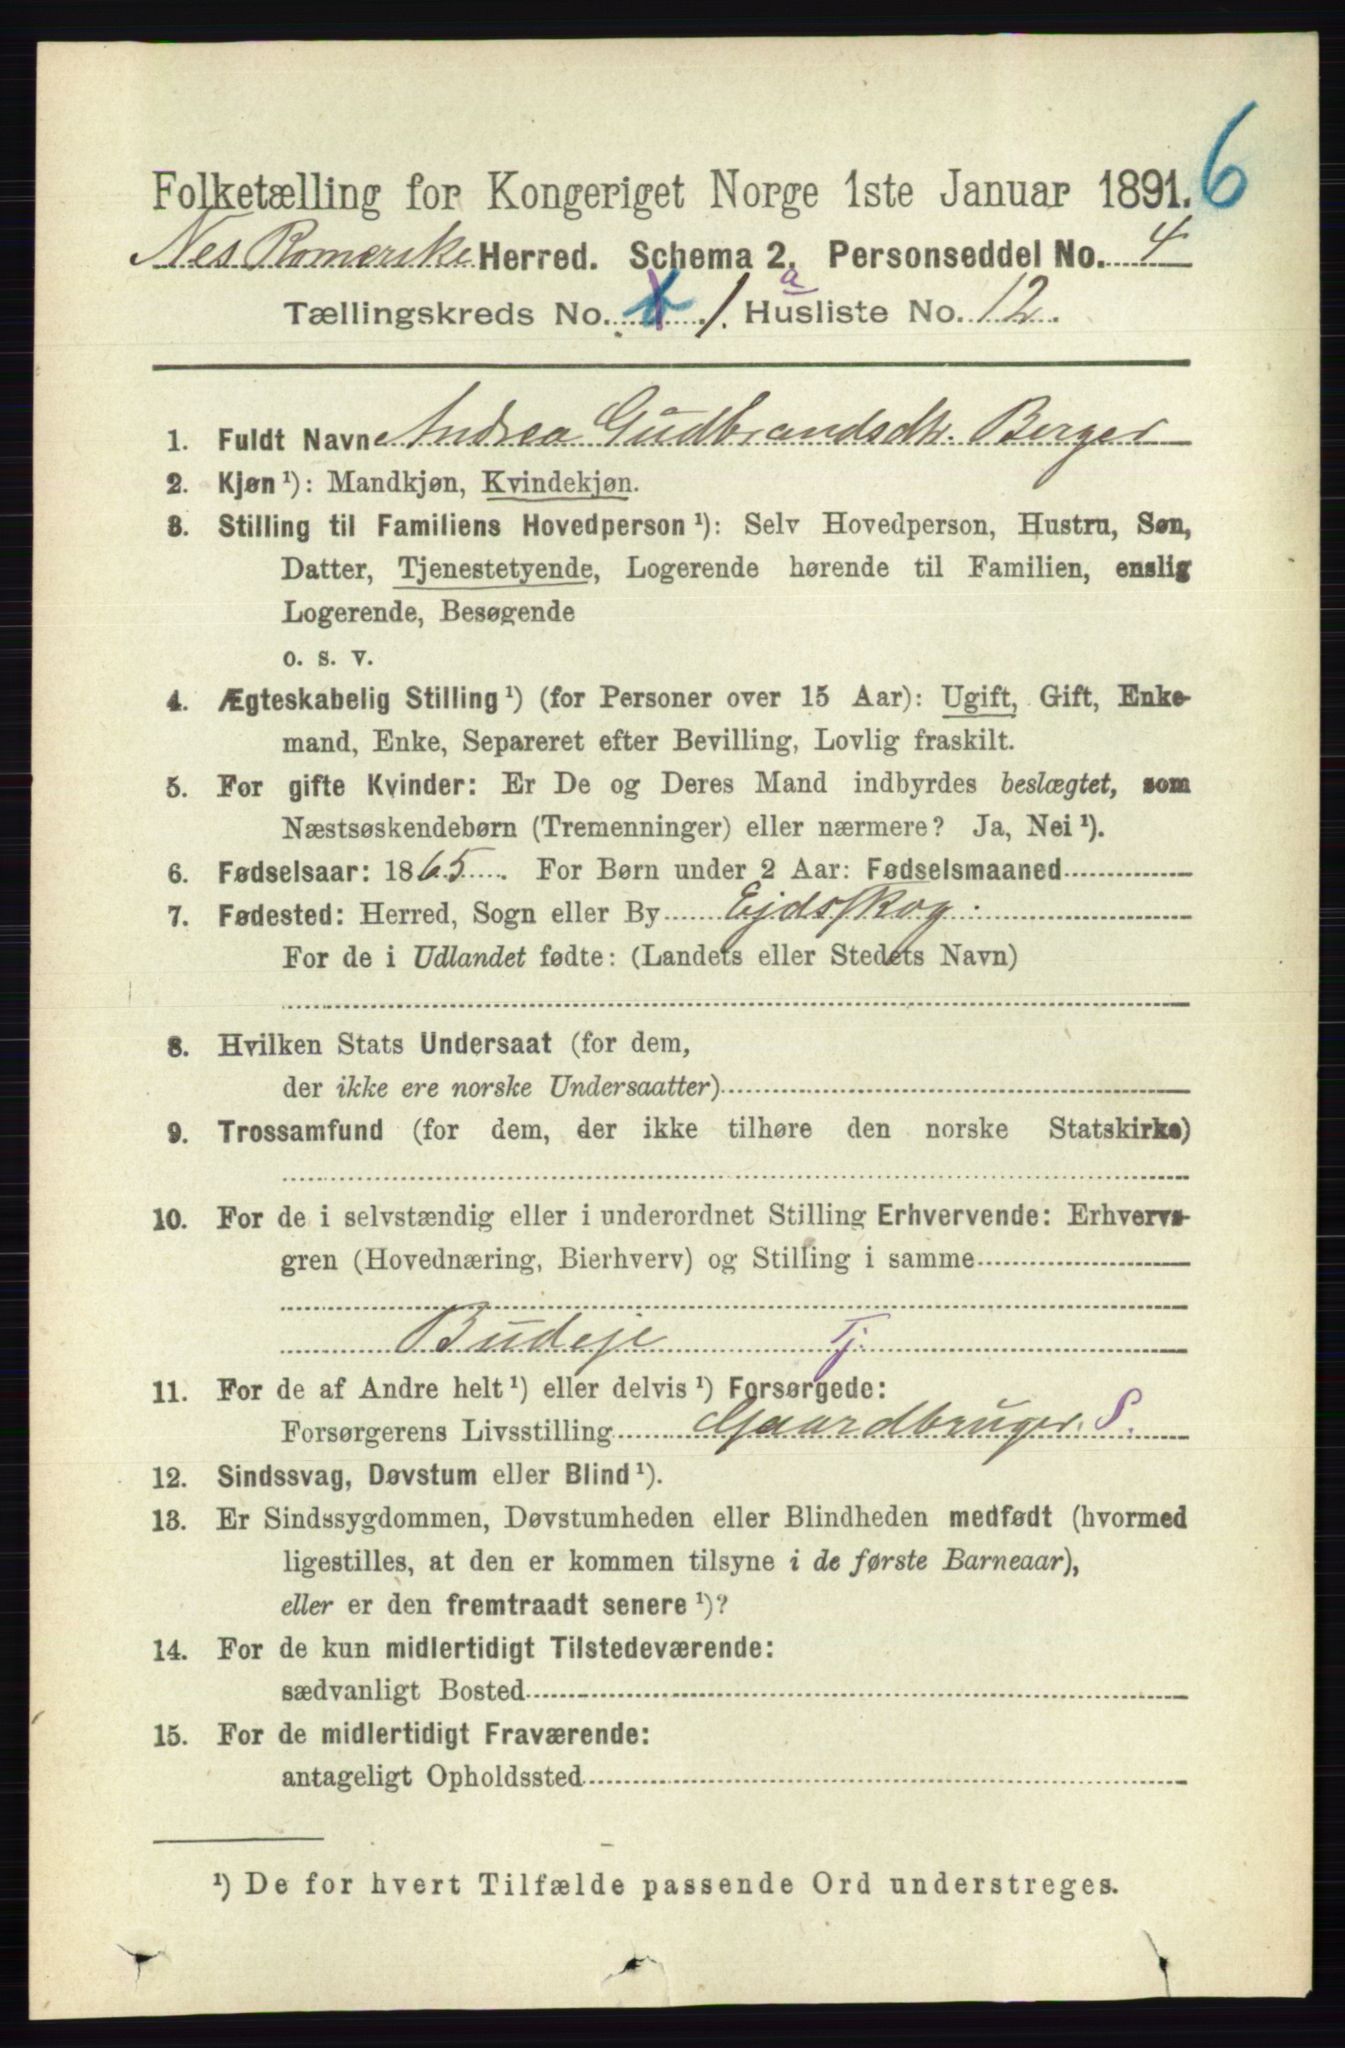 6
Folketælling for Kongeriget Norge 1ste Januar 1891.
Nes Romerike Herred. Schema 2. Personseddel No. 4
Tællingskreds No. 1. a Husliste No. 12.
1. Fuldt Navn Andrea Gudbrandsdtr. Berger
2. Kjøn ¹): Mandkjøn, Kvindekjøn.
3. Stilling til Familiens Hovedperson ¹): Selv Hovedperson, Hustru, Søn,
Datter, Tjenestetyende, Logerende hørende til Familien, enslig
Logerende, Besøgende
o. s. v.
4. Ægteskabelig Stilling ¹) (for Personer over 15 Aar): Ugift, Gift, Enke-
mand, Enke, Separeret efter Bevilling, Lovlig fraskilt.
5. For gifte Kvinder: Er De og Deres Mand indbyrdes beslægtet, som
Næstsøskendebørn (Tremenninger) eller nærmere? Ja, Nei ¹).
6. Fødselsaar: 1865. For Børn under 2 Aar: Fødselsmaaned
7. Fødested: Herred, Sogn eller By Ejdsskog.
For de i Udlandet fødte: (Landets eller Stedets Navn)
8. Hvilken Stats Undersaat (for dem,
der ikke ere norske Undersaatter)
9. Trossamfund (for dem, der ikke tilhøre den norske Statskirke)
10. For de i selvstændig eller i underordnet Stilling Erhvervende: Erhvervs-
gren (Hovednæring, Bierhverv) og Stilling i samme
Budeje Tj.
11. For de af Andre helt ¹) eller delvis ¹) Forsørgede:
Forsørgerens Livsstilling Gaardbruger. S.
12. Sindssvag, Døvstum eller Blind ¹).
13. Er Sindssygdommen, Døvstumheden eller Blindheden medfødt (hvormed
ligestilles, at den er kommen tilsyne i de første Barneaar),
eller er den fremtraadt senere ¹)?
14. For de kun midlertidigt Tilstedeværende:
sædvanligt Bosted
15. For de midlertidigt Fraværende:
antageligt Opholdssted
¹) De for hvert Tilfælde passende Ord understreges.